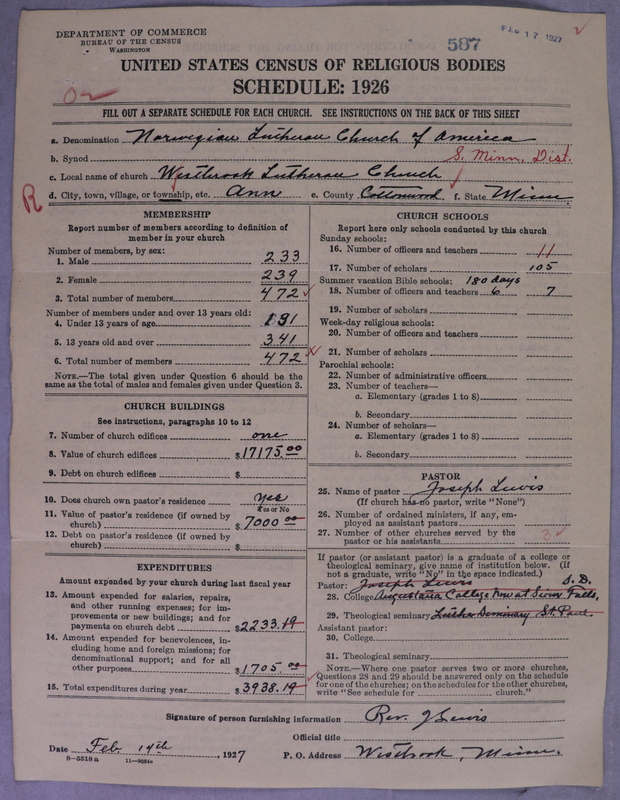 DEPARTMENT OF COMMERCE
BUREAU OF THE CENSUS
WASHINGTON
587
FEB 17 1927
UNITED STATES CENSUS OF RELIGIOUS BODIES
SCHEDULE: 1926
FILL OUT A SEPARATE SCHEDULE FOR EACH CHURCH. SEE INSTRUCTIONS ON THE BACK OF THIS SHEET
a. Denomination Norwegian Lutheran Church of America
b. Synod S. Minn. Dist.
c. Local name of church Westbrook Lutheran Church
d. City, town, village, or township, etc. Ann e. County Cottonwood f. State Minn.
R
MEMBERSHIP
Report number of members according to definition of member in your church
Number of members, by sex:
1. Male 233
2. Female 239
3. Total number of members 472
Number of members under and over 13 years old:
4. Under 13 years of age 131
5. 13 years old and over 341
6. Total number of members 472
NOTE.—The total given under Question 6 should be the same as the total of males and females given under Question 3.
CHURCH BUILDINGS
See instructions, paragraphs 10 to 12
7. Number of church edifices one
8. Value of church edifices $17175.00
9. Debt on church edifices $
10. Does church own pastor's residence Yes
Yes or No
11. Value of pastor's residence (if owned by church) $7000 00
12. Debt on pastor's residence (if owned by church) $
EXPENDITURES
Amount expended by your church during last fiscal year
13. Amount expended for salaries, repairs, and other running expenses; for improvements or new buildings; and for payments on church debt $2233.19
14. Amount expended for benevolences, including home and foreign missions; for denominational support; and for all other purposes $1705.00
15. Total expenditures during year $3938.19
CHURCH SCHOOLS
Report here only schools conducted by this church
Sunday schools:
16. Number of officers and teachers 11
17. Number of scholars 105
Summer vacation Bible schools: 180 days
18. Number of officers and teachers 6 7
19. Number of scholars
Week-day religious schools:
20. Number of officers and teachers
21. Number of scholars
Parochial schools:
22. Number of administrative officers
23. Number of teachers—
a. Elementary (grades 1 to 8)
b. Secondary
24. Number of scholars—
a. Elementary (grades 1 to 8)
b. Secondary
PASTOR
25. Name of pastor Joseph Lewis
(If church has no pastor, write "None")
26. Number of ordained ministers, if any, employed as assistant pastors
27. Number of other churches served by the pastor or his assistants 3
If pastor (or assistant pastor) is a graduate of a college or theological seminary, give name of institution below. (If not a graduate, write "No" in the space indicated.)
Pastor: Joseph Lewis S. D.
28. College Augustana College Now at Sioux Falls,
29. Theological seminary Luther Seminary St. Paul
Assistant pastor:
30. College
31. Theological seminary
NOTE.—Where one pastor serves two or more churches, Questions 28 and 29 should be answered only on the schedule for one of the churches; on the schedules for the other churches, write "See schedule for church."
Signature of person furnishing information Rev. J Lewis
Official title
Date Feb. 14th, 1927 P. O. Address Westbrook, Minn.
8—5518a 11—9034a